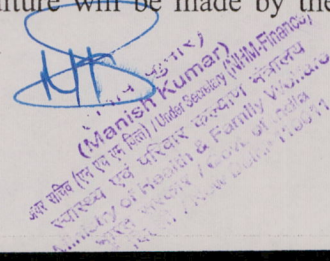 will be made by the
(Manish Kumar)
अवर सचिव (एन एच एम वित्त) / Under Secretary (NHM-Finance)
स्वास्थ्य एवं परिवार कल्याण मंत्रालय
Ministry of Health & Family Welfare
भारत सरकार / Govt. of India